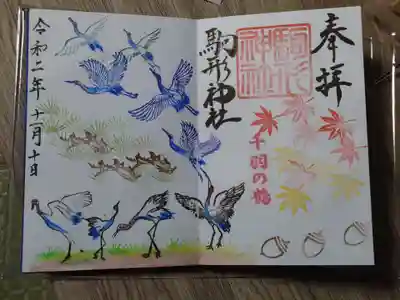 奉拝
駒形神社
駒形神社
千羽の鶴
令和二年十一月十日